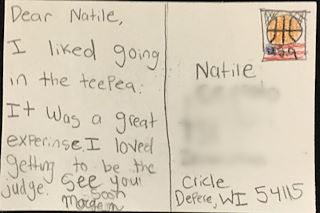 Dear Natile,
I liked going
in the teepea.
It was a great
experinse. I loved
getting to be the
judge. See you!
USA
Natile
Cricle
Depere, WI 54115